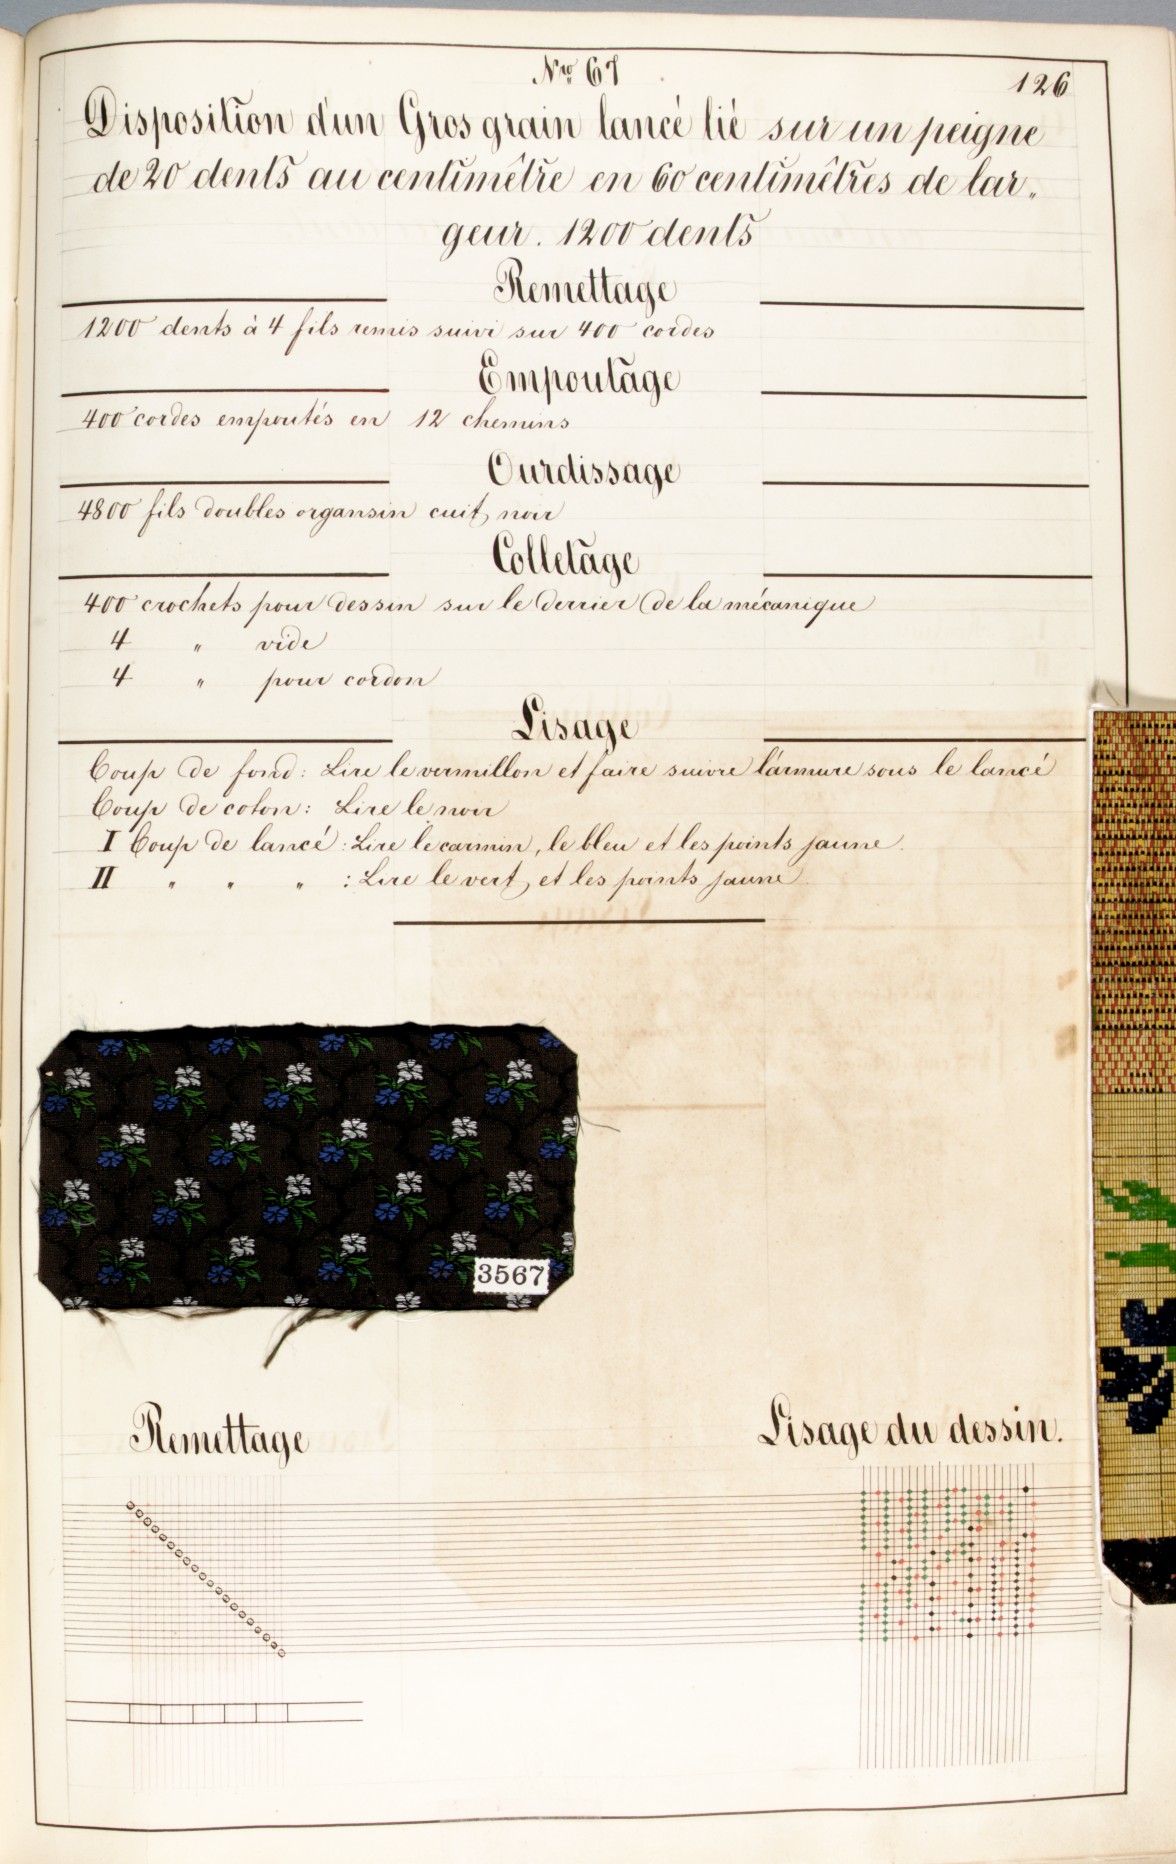 Nro 67
126
Disposition d'un Gros grain lancé lié sur un peigne
de 20 dents au centimêtre en 60 centimêtres de lar„
geur. 1200 dents
Remettage
1200 dents à 4 fils remis suivi sur 400 cordes
Empoutage
400 cordes empoutés en 12 chemins
Ourdissage
4800 fils doubles organsin cuit noir
Colletage
400 crochets pour dessin sur le derrier de la mécanique
4 „ vide
4 „ pour cordon
Lisage
Coup de fond: Lire le vermillon et faire suivre l'armure sous le lancé
Coup de coton: Lire le noir
I Coup de lancé: Lire le carmin, le bleu et les points jaune.
II „ „ „ : Lire le vert et les points jaune.
3567
Remettage
Lisage du dessin.